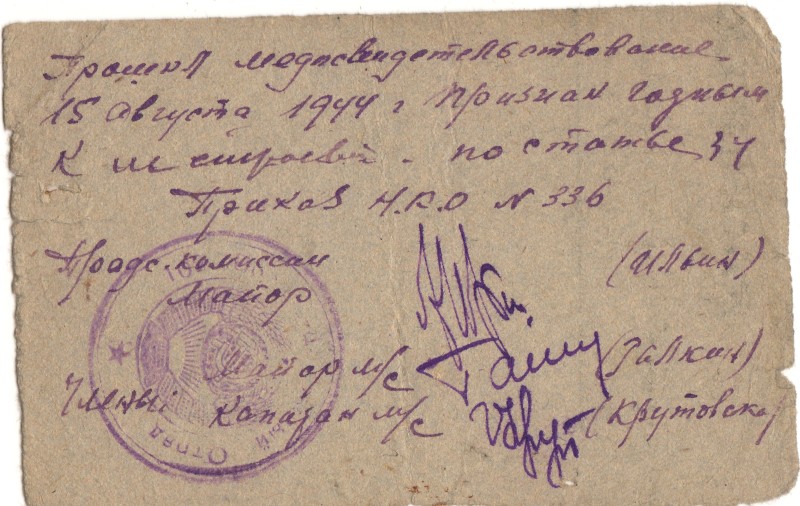 Прошел медосвидетельствование
15 Августа 1944 г признан годным
к не строевой - по статье 34
Приказ Н.К.О N 336
Председ. комиссии
Майор (Ильин)
Майор м/с (Галкин)
Члены: Капитан м/с (Крутовска
Отряд